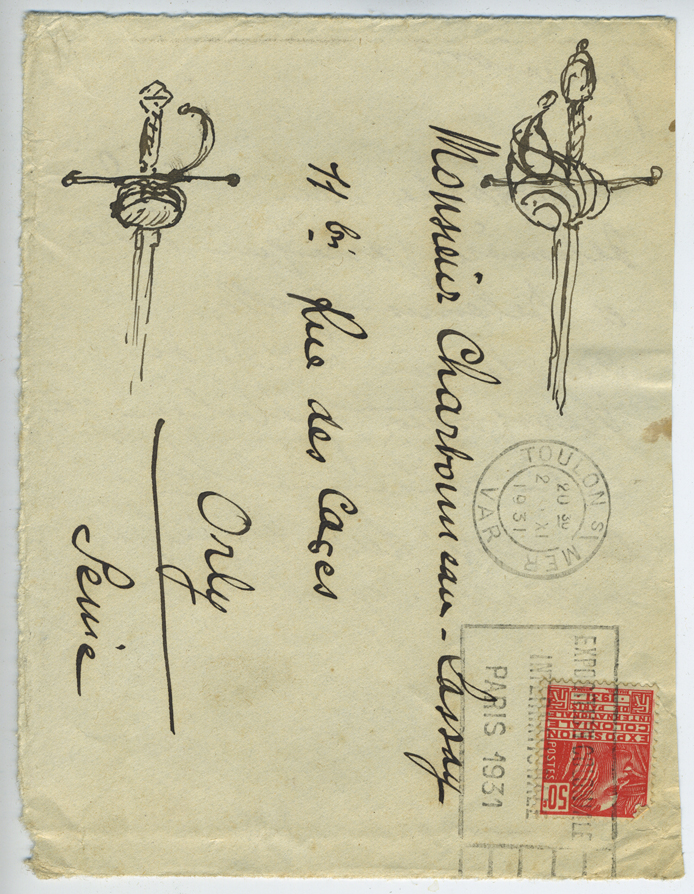 Monsieur Charbonneau-Lassay
11 bis Rue des Cages
Orly
Seine
TOULON S! MER
20 30
2 XI
1931
VAR
EXPOSITION COLONIALE
INTERNATIONALE
PARIS 1931
EXPOSITION
COLONIALE
INTERNATIONALE
PARIS
1931
POSTES
50c